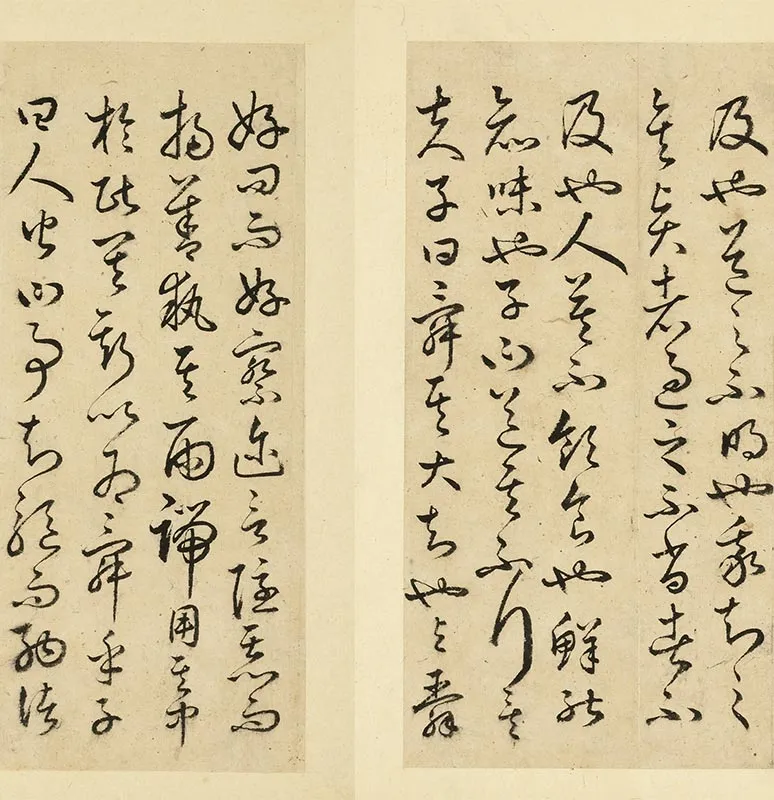 及也道之不明也我知之
矣賢者過之不肖者不
及也人莫不飲食也鮮能
知味也子曰道其不行矣
夫子曰舜其大知也与舜
好問而好察邇言隱惡而
揚善執其兩端用其中
於民其斯以為舜乎子
曰人皆曰予知驅而納諸